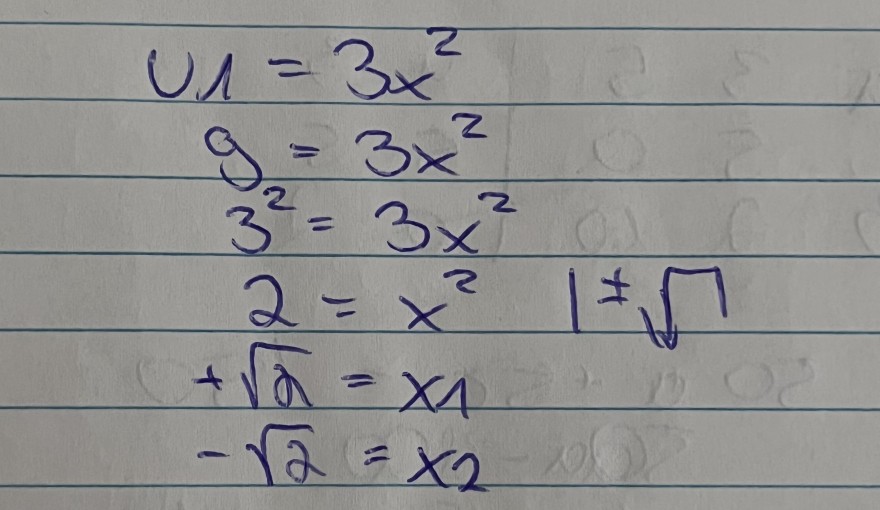 U1 = 3x²
9 = 3x²
3² = 3x²
2 = x² | ±√
+√2 = x1
-√2 = x2